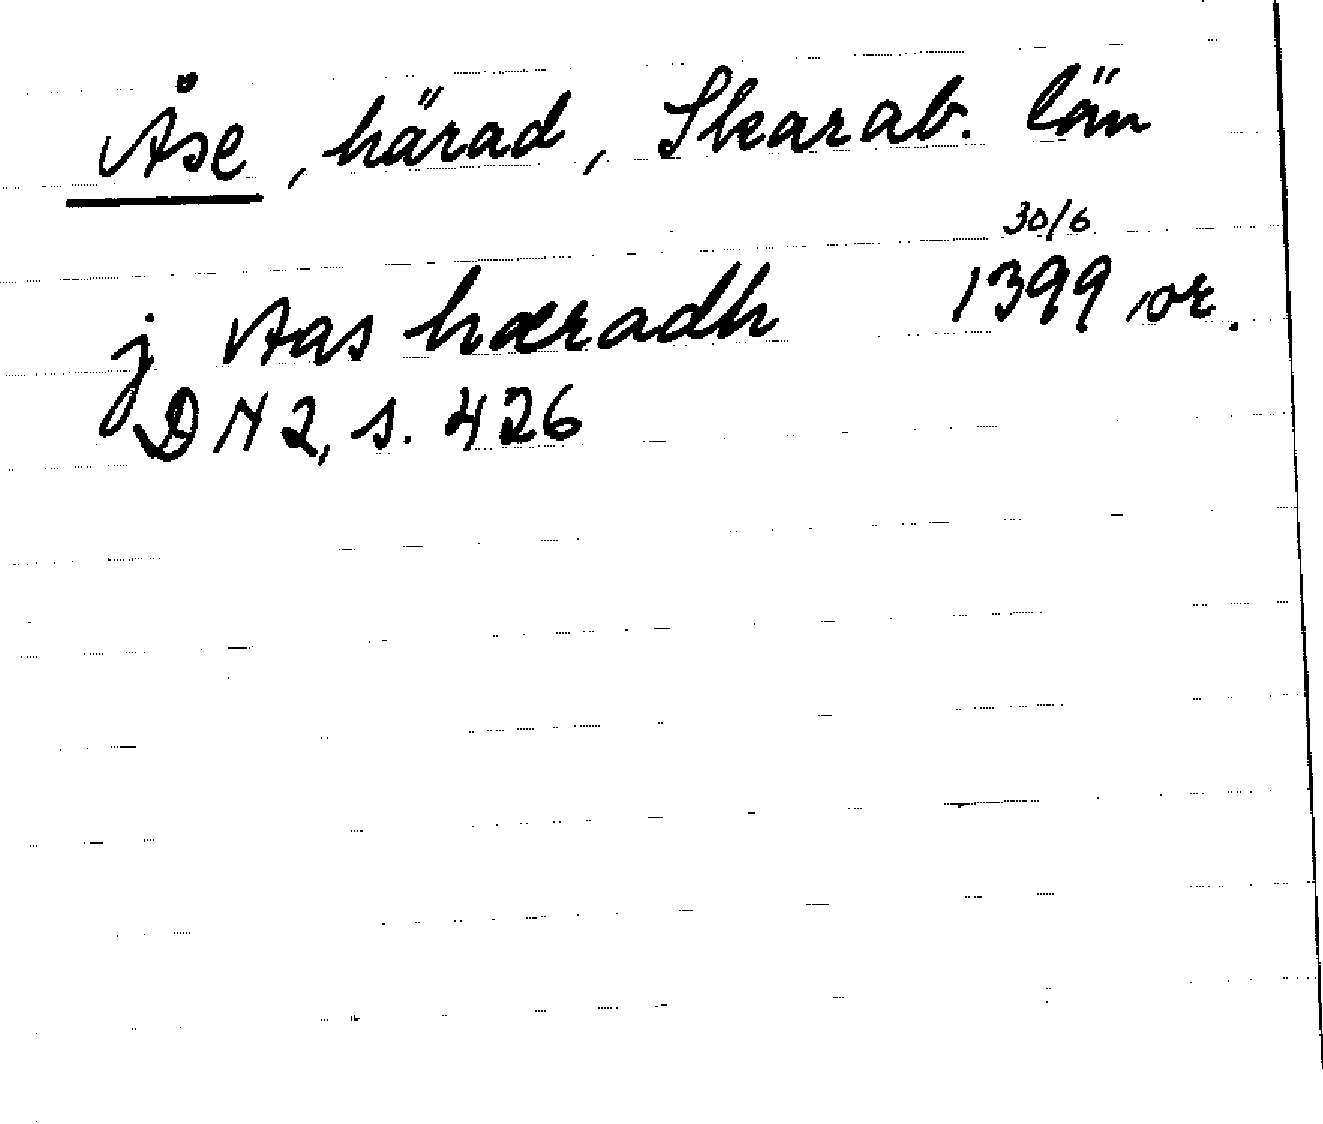 Åse, härad, Skarab. län
30/6
j Aas hæradh 1399 or.
DN 2, s. 426